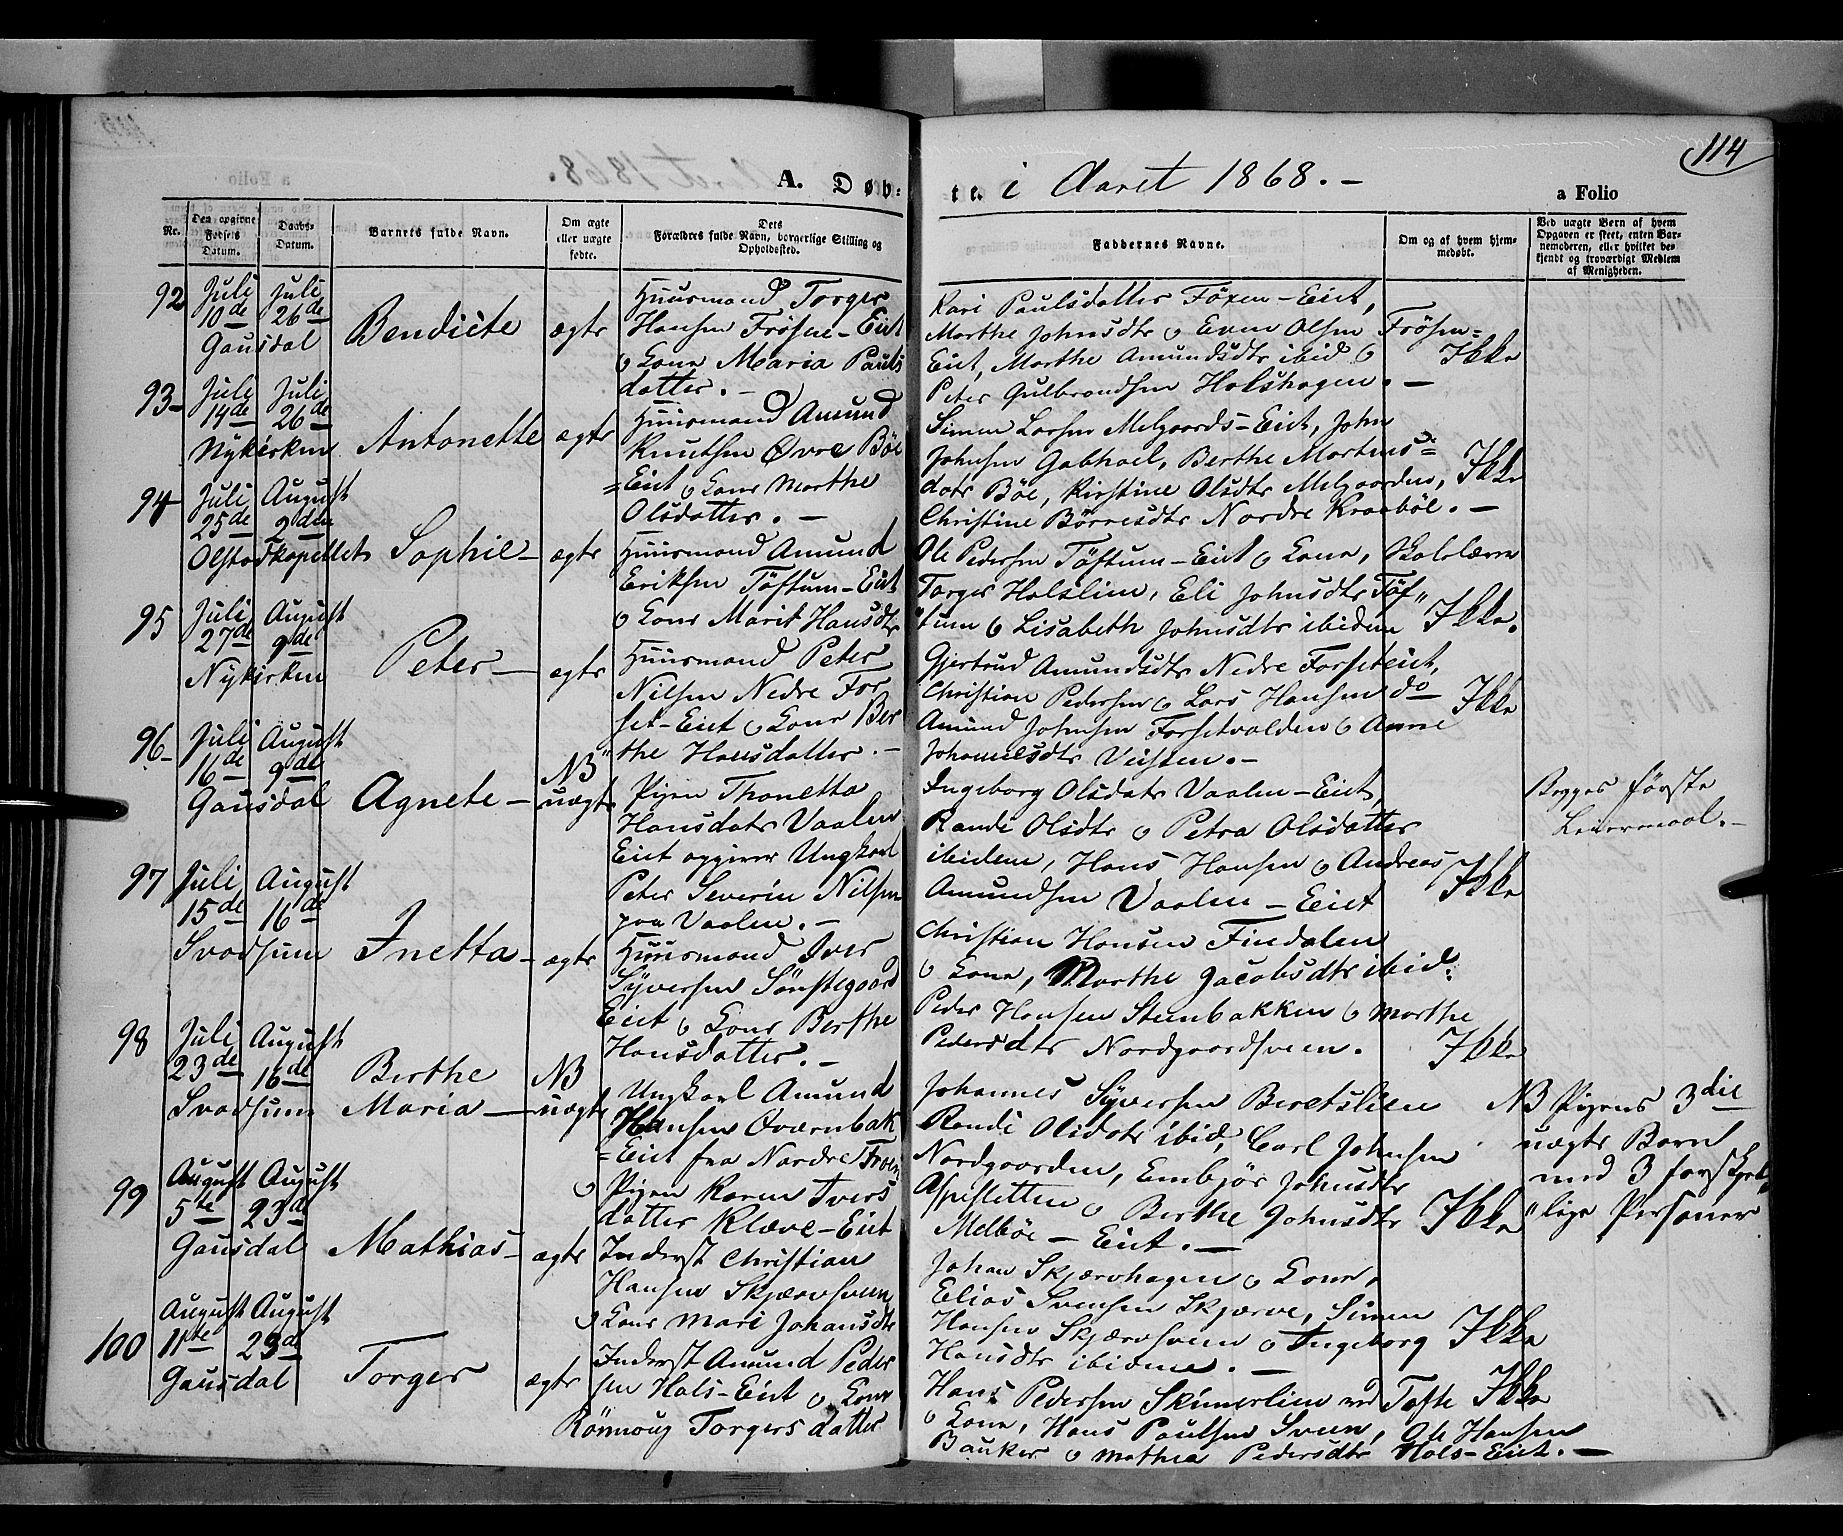 114
A. Døb=
te. i Aaret 1868. -
a Folio
Nr.
Den opgivne Fødsels Datum.
Daabs-Datum.
Barnets fulde Navn.
Om ægte eller uægte fødte.
Dets Forældres fulde Navn, borgerlige Stilling og Opholdssted.
Faddernes Navne.
Om og af hvem hjemmedøbt.
Ved uægte Børn af hvem Opgaven er skeet, enten Barnemoderen, eller hvilket bekjendt og troværdigt Medlem af Menigheden.
92 Juli 10de Juli 26de
Gausdal
Bendicte ægte
Huusmand Torger
Hansen Frösne-Eiet
o Kone Maria Pauls
datter. -
Kari Paulsdatter Föxen-Eiet,
Marthe Johnsdtr o Even Olsen Frösen=
Eiet, Marthe Amundsdtr ibid o
Peter Gulbrandsen Holshagen. -
Ikke
93- Juli 14de Juli 26de
Nykirken
Antonette ægte
Huusmand Amund
Knutsen Øvre Böe
=Eiet o Kone Marthe
Olsdatter. -
Simen Larsen Melgaards-Eiet, John
Johnsen Gabhoel, Berthe Mortens=
datr Böe, Kirstine Olsdtr Melgaarden,
Christine Börresdtr Nordre Kraaböl. -
Ikke
94- Juli 25de August 2den
Olstadkapellet
Sophie- ægte
Huusmand Amund
Eriksen Töftum-Eiet
o Kone Marit Hansdtr
Ole Pedersen Töftum-Eiet o Kone, Skolelærer
Torger Holslien, Eli Johnsdtr Töf„
"tum o Lisabeth Johnsdtr ibidem
Ikke.
95 Juli 27de August 9de
Nykirken
Peter- ægte
Huusmand Peter
Nilsen Nedre For
set-Eiet o Kone Ber
the Hansdatter. -
Gjertrud Amundsdtr Nedre Forseteiet,
Christian Pedersen o Lars Hansen do
Amund Johnsen Forsetvolden o Anne
Johannesdtr Veisten. -
Ikke
96- Juli 16de August 9de
Gausdal
Agnete- NB uægte
Pigen Thonetta
Hansdatr Vaalen
Eiet opgiver Ungkarl
Peter Severin Nilsen
paa Vaalen. -
Ingeborg Olsdatr Vaalen-Eiet,
Rande Olsdtr o Petra Olsdatter
ibidem, Hans Hansen o Andreas
Amundsen Vaalen-Eiet
Ikke
Begges første
Leiermaal. -
97 Juli 15de August 16de
Svadsum
Inetta- ægte
Huusmand Iver
Syversen Sönstegaard
Eiet o Kone Berthe
Hansdatter. -
Christian Hansen Findalen
o Kone, Marthe Jacobsdtr ibid:
Peder Hansen Steenbakken o Marthe
Pedersdtr Nordgaardsveen.
Ikke
98 Juli 23de August 16de
Svadsum
Berthe
Maria- NB uægte
Ungkarl Amund
Hansen Qværnbak
=Eiet fra Nordre Froen
o Pigen Karen Ivers
datter Klæve-Eiet
Johannes Syversen Beretslien
Randi Olsdatr ibid, Carl Johnsen
Nordgaarden, Embjör Johnsdtr
Aspesletten o Berthe Johnsdtr
Melböe-Eiet. -
Ikke
NB Pigens 3die
uægte Barn
med 3 forskjel„
"lige Personer
99 August 5te August 23de
Gausdal
Mathias- ægte
Inderst Christian
Hansen Skjærvsveen
o Kone Mari Johansdtr
Johan Skjærvhagen o Kone,
Elias Svensen Skjærve, Simen
Hansen Skjærvsveen o Ingeborg
Hansdtr ibidem. -
Ikke
100 August 11te August 23de
Gausdal
Torger ægte
Inderst Amund Peder
sen Hols-Eiet o Kone
Rönnoug Torgersdatter
Hans Pedersen Skimerlien ved Tofte
o Kone, Hans Paulsen Sveen, Ole Hansen
Bauker o Mathea Pedersdtr Hols-Eiet. -
Ikke